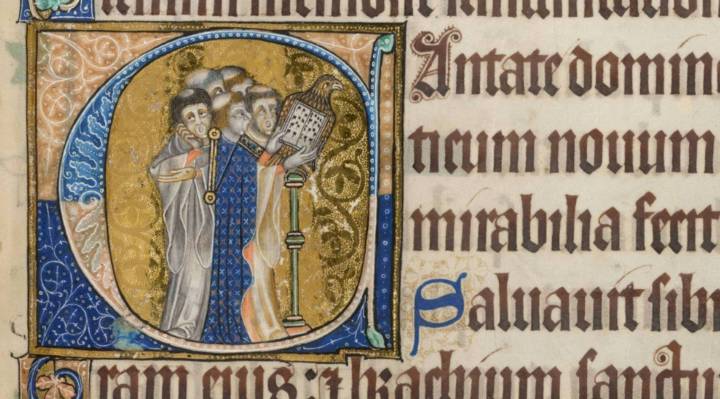 CAntate domin
ticum nouum
mirabilia fecit
Saluauit sibi
ram eius : ⁊ brachium sanctu